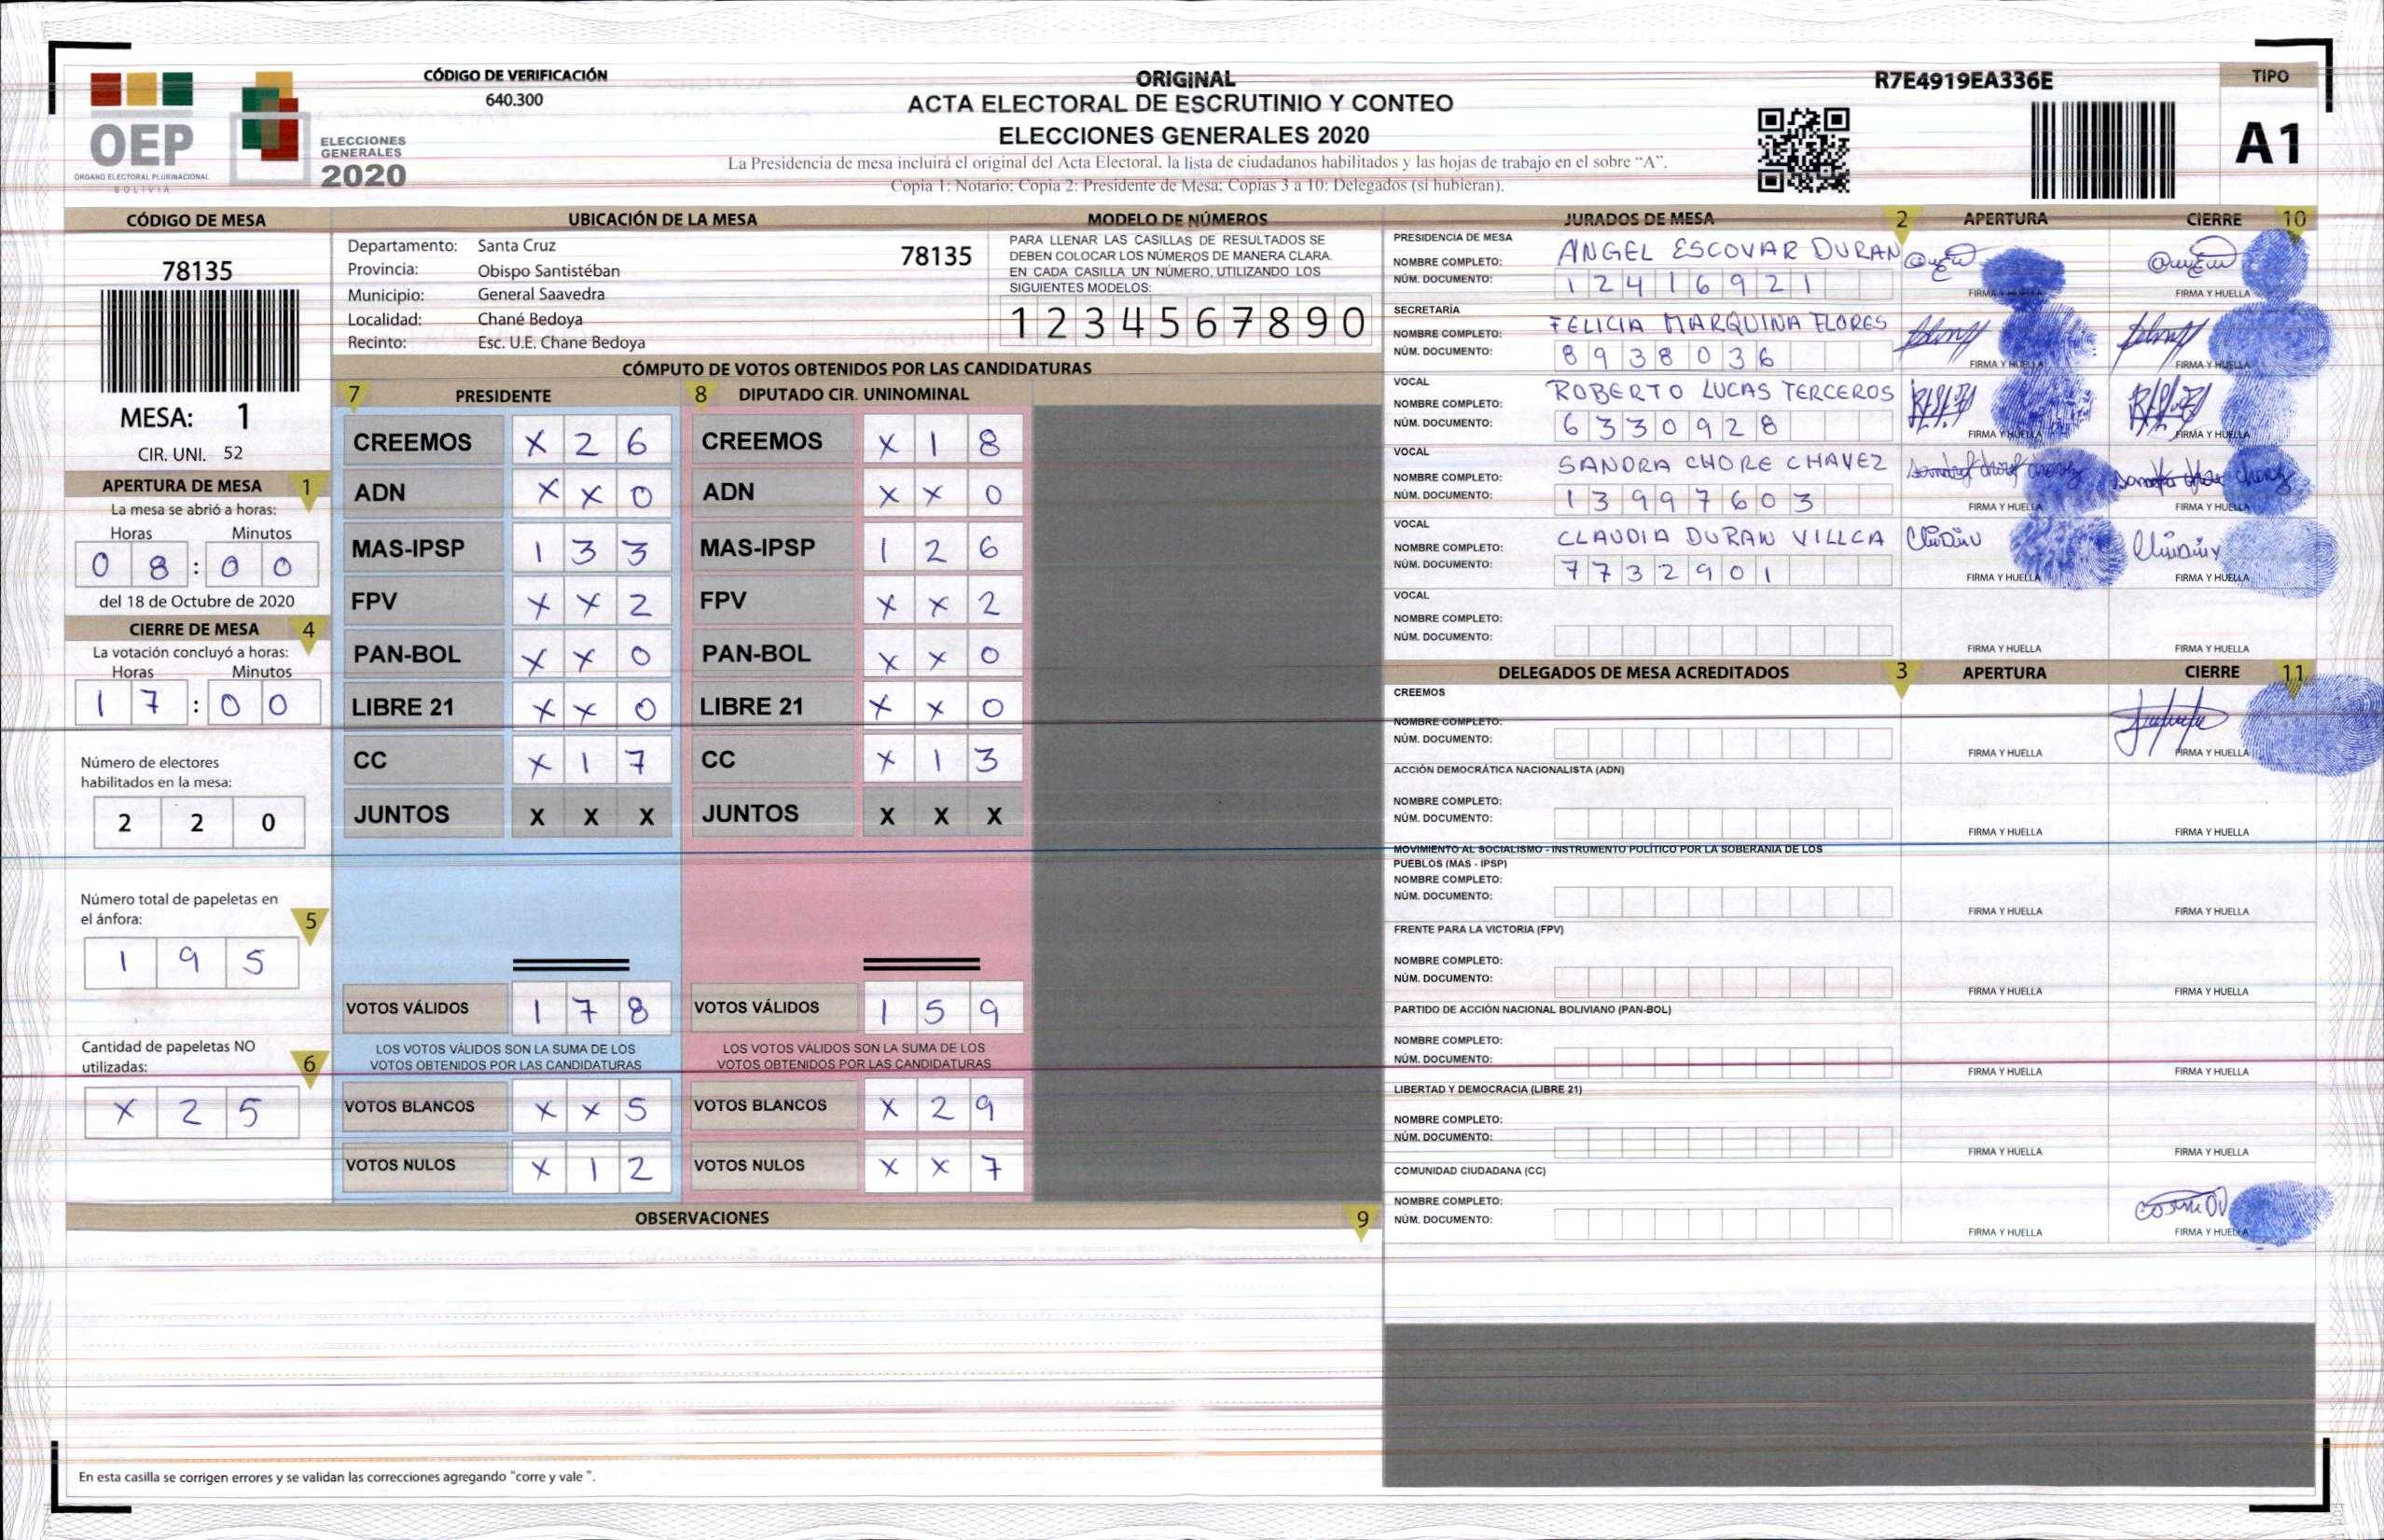 OEP
ÓRGANO ELECTORAL PLURINACIONAL
BOLIVIA
ELECCIONES
GENERALES
2020
CÓDIGO DE VERIFICACIÓN
640.300
ORIGINAL
ACTA ELECTORAL DE ESCRUTINIO Y CONTEO
ELECCIONES GENERALES 2020
La Presidencia de mesa incluirá el original del Acta Electoral, la lista de ciudadanos habilitados y las hojas de trabajo en el sobre "A".
Copia 1: Notario; Copia 2: Presidente de Mesa; Copias 3 a 10: Delegados (si hubieran).
R7E4919EA336E
TIPO
A1
CÓDIGO DE MESA
78135
MESA: 1
CIR. UNI. 52
APERTURA DE MESA 1
La mesa se abrió a horas:
Horas Minutos
0 8 : 0 0
del 18 de Octubre de 2020
CIERRE DE MESA 4
La votación concluyó a horas:
Horas Minutos
1 7 : 0 0
Número de electores
habilitados en la mesa:
2 2 0
Número total de papeletas en
el ánfora: 5
1 9 5
Cantidad de papeletas NO
utilizadas: 6
X 2 5
UBICACIÓN DE LA MESA
Departamento: Santa Cruz 78135
Provincia: Obispo Santistéban
Municipio: General Saavedra
Localidad: Chané Bedoya
Recinto: Esc. U.E. Chane Bedoya
MODELO DE NÚMEROS
PARA LLENAR LAS CASILLAS DE RESULTADOS SE
DEBEN COLOCAR LOS NÚMEROS DE MANERA CLARA.
EN CADA CASILLA UN NÚMERO, UTILIZANDO LOS
SIGUIENTES MODELOS:
1 2 3 4 5 6 7 8 9 0
CÓMPUTO DE VOTOS OBTENIDOS POR LAS CANDIDATURAS
7 PRESIDENTE 8 DIPUTADO CIR. UNINOMINAL
CREEMOS X 2 6 CREEMOS X 1 8
ADN X X 0 ADN X X 0
MAS-IPSP 1 3 3 MAS-IPSP 1 2 6
FPV X X 2 FPV X X 2
PAN-BOL X X 0 PAN-BOL X X 0
LIBRE 21 X X 0 LIBRE 21 X X 0
CC X 1 7 CC X 1 3
JUNTOS X X X JUNTOS X X X
VOTOS VÁLIDOS 1 7 8 VOTOS VÁLIDOS 1 5 9
LOS VOTOS VÁLIDOS SON LA SUMA DE LOS LOS VOTOS VÁLIDOS SON LA SUMA DE LOS
VOTOS OBTENIDOS POR LAS CANDIDATURAS VOTOS OBTENIDOS POR LAS CANDIDATURAS
VOTOS BLANCOS X X 5 VOTOS BLANCOS X 2 9
VOTOS NULOS X 1 2 VOTOS NULOS X X 7
OBSERVACIONES 9
En esta casilla se corrigen errores y se validan las correcciones agregando "corre y vale ".
JURADOS DE MESA 2 APERTURA CIERRE 10
PRESIDENCIA DE MESA
NOMBRE COMPLETO: ANGEL ESCOVAR DURAN
NÚM. DOCUMENTO: 1 2 4 1 6 9 2 1
FIRMA Y HUELLA FIRMA Y HUELLA
SECRETARÍA
NOMBRE COMPLETO: FELICIA MARQUINA FLORES
NÚM. DOCUMENTO: 8 9 3 8 0 3 6
FIRMA Y HUELLA FIRMA Y HUELLA
VOCAL
NOMBRE COMPLETO: ROBERTO LUCAS TERCEROS
NÚM. DOCUMENTO: 6 3 3 0 9 2 8
FIRMA Y HUELLA FIRMA Y HUELLA
VOCAL
NOMBRE COMPLETO: SANDRA CHORE CHAVEZ
NÚM. DOCUMENTO: 1 3 9 9 7 6 0 3
FIRMA Y HUELLA FIRMA Y HUELLA
VOCAL
NOMBRE COMPLETO: CLAUDIA DURAN VILLCA
NÚM. DOCUMENTO: 7 7 3 2 9 0 1
FIRMA Y HUELLA FIRMA Y HUELLA
VOCAL
NOMBRE COMPLETO:
NÚM. DOCUMENTO:
FIRMA Y HUELLA FIRMA Y HUELLA
DELEGADOS DE MESA ACREDITADOS 3 APERTURA CIERRE 11
CREEMOS
NOMBRE COMPLETO:
NÚM. DOCUMENTO:
FIRMA Y HUELLA FIRMA Y HUELLA
ACCIÓN DEMOCRÁTICA NACIONALISTA (ADN)
NOMBRE COMPLETO:
NÚM. DOCUMENTO:
FIRMA Y HUELLA FIRMA Y HUELLA
MOVIMIENTO AL SOCIALISMO - INSTRUMENTO POLÍTICO POR LA SOBERANÍA DE LOS
PUEBLOS (MAS - IPSP)
NOMBRE COMPLETO:
NÚM. DOCUMENTO:
FIRMA Y HUELLA FIRMA Y HUELLA
FRENTE PARA LA VICTORIA (FPV)
NOMBRE COMPLETO:
NÚM. DOCUMENTO:
FIRMA Y HUELLA FIRMA Y HUELLA
PARTIDO DE ACCIÓN NACIONAL BOLIVIANO (PAN-BOL)
NOMBRE COMPLETO:
NÚM. DOCUMENTO:
FIRMA Y HUELLA FIRMA Y HUELLA
LIBERTAD Y DEMOCRACIA (LIBRE 21)
NOMBRE COMPLETO:
NÚM. DOCUMENTO:
FIRMA Y HUELLA FIRMA Y HUELLA
COMUNIDAD CIUDADANA (CC)
NOMBRE COMPLETO:
NÚM. DOCUMENTO:
FIRMA Y HUELLA FIRMA Y HUELLA